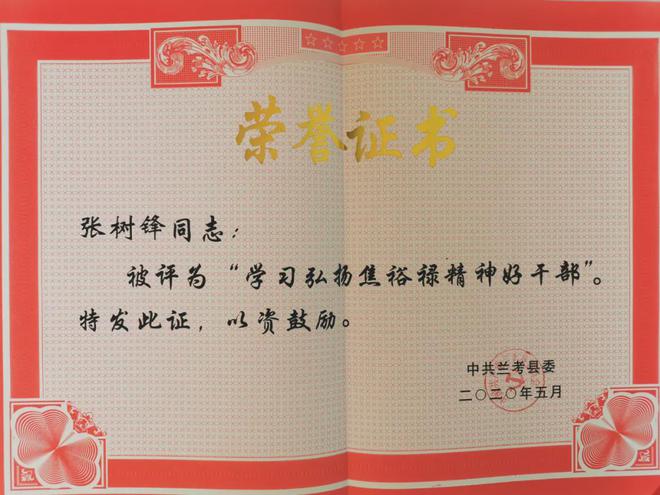 荣誉证书
张树锋同志：
被评为“学习弘扬焦裕禄精神好干部”。
特发此证，以资鼓励。
中共兰考县委
二〇二〇年五月